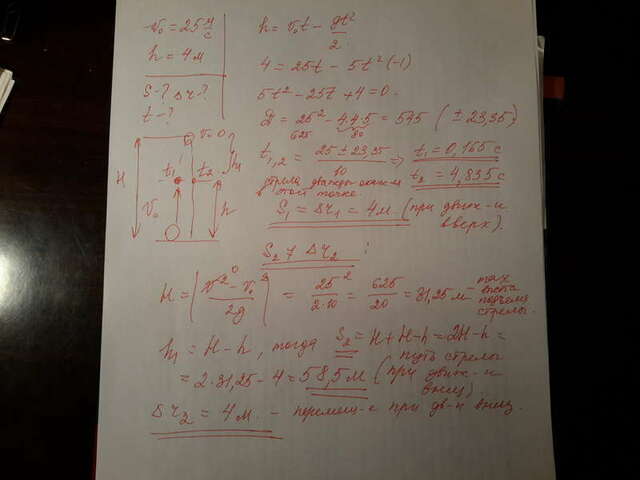 v₀ = 25 м/с
h = 4 м
S - ? Δr - ?
t - ?
h = v₀t - gt²/2
4 = 25t - 5t² (-1)
5t² - 25t + 4 = 0
D = 25² - 4·4·5 = 545 (±23,35)
625 80
t₁,₂ = (25 ± 23,35)/10 => t₁ = 0,165 с
t₂ = 4,835 с
стрела дважды окажется
в этой точке
S₁ = Δr₁ = 4 м (при движ-и
вверх).
v=0
t₁ t₂ h₁
H v₀ h
S₂ ≠ Δr₂ !
H = |(v² - v₀²)/2g| = 25²/2·10 = 625/20 = 31,25 м - max
0
высота
подъема
стрелы.
h₁ = H - h, тогда S₂ = H + H - h = 2H - h =
путь стрелы
= 2·31,25 - 4 = 58,5 м (при движ-и
вниз)
Δr₂ = 4 м. - перемещ-е при дв-и вниз.